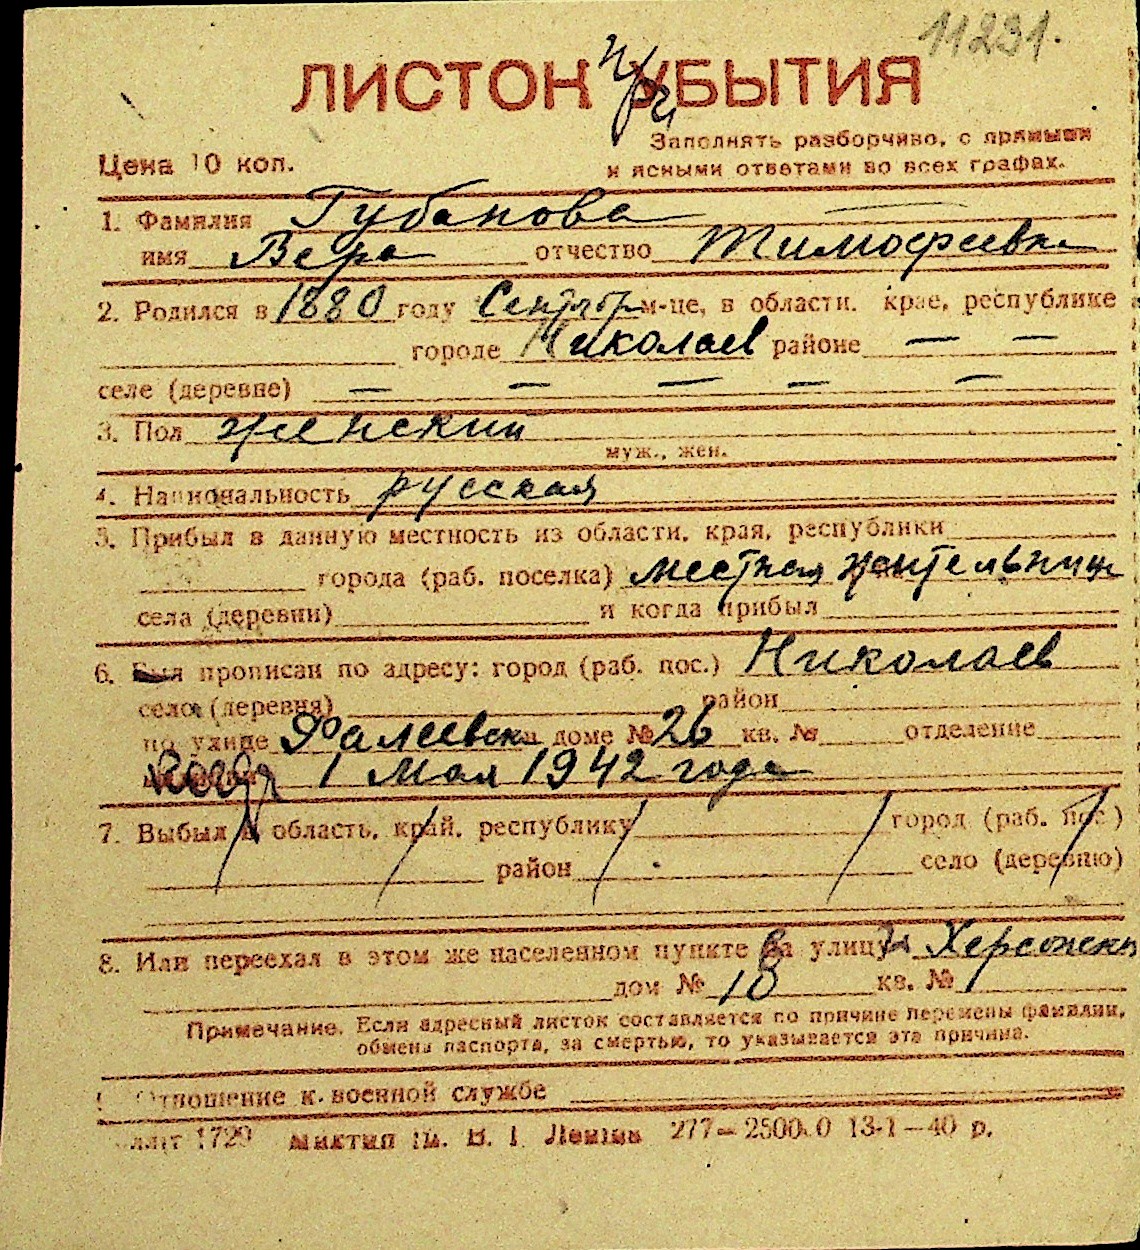 11231.
ЛИСТОК УБЫТИЯ
Заполнять разборчиво, с прямыми
Цена 10 коп.
и ясными ответами во всех графах.
1. Фамилия Губанова
имя Вера отчество Тимофеевна
2. Родился в 1880 году Сентябр м-це, в области, крае, республике
городе Николаев районе — —
селе (деревне) — — — — —
3. Пол женский
муж., жен.
4. Национальность русская
5. Прибыл в данную местность из области, края, республики
города (раб. поселка) местная жительница
села (деревни) и когда прибыл
6. Был прописан по адресу: город (раб. пос.) Николаев
село (деревня) район
по улице Фалеевская доме № 26 кв. № отделение
1 Мая 1942 года
7. Выбыл в область, край, республику город (раб. пос.)
район село (деревню)
8. Или переехал в этом же населенном пункте на улицу Херсонск
дом № 18 кв. № 1
Примечание. Если адресный листок составляется по причине перемены фамилии,
обмена паспорта, за смертью, то указывается эта причина.
Отношение к военной службе
1729 277—2500.0 13-1—40 р.